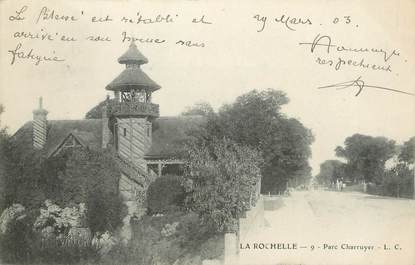 Le Blessé est rétabli et
arrivé en son home sans
fatigue
29 Mars. 03
Hommages
respectueux
LA ROCHELLE - 9 - Parc Charruyer - L. C.